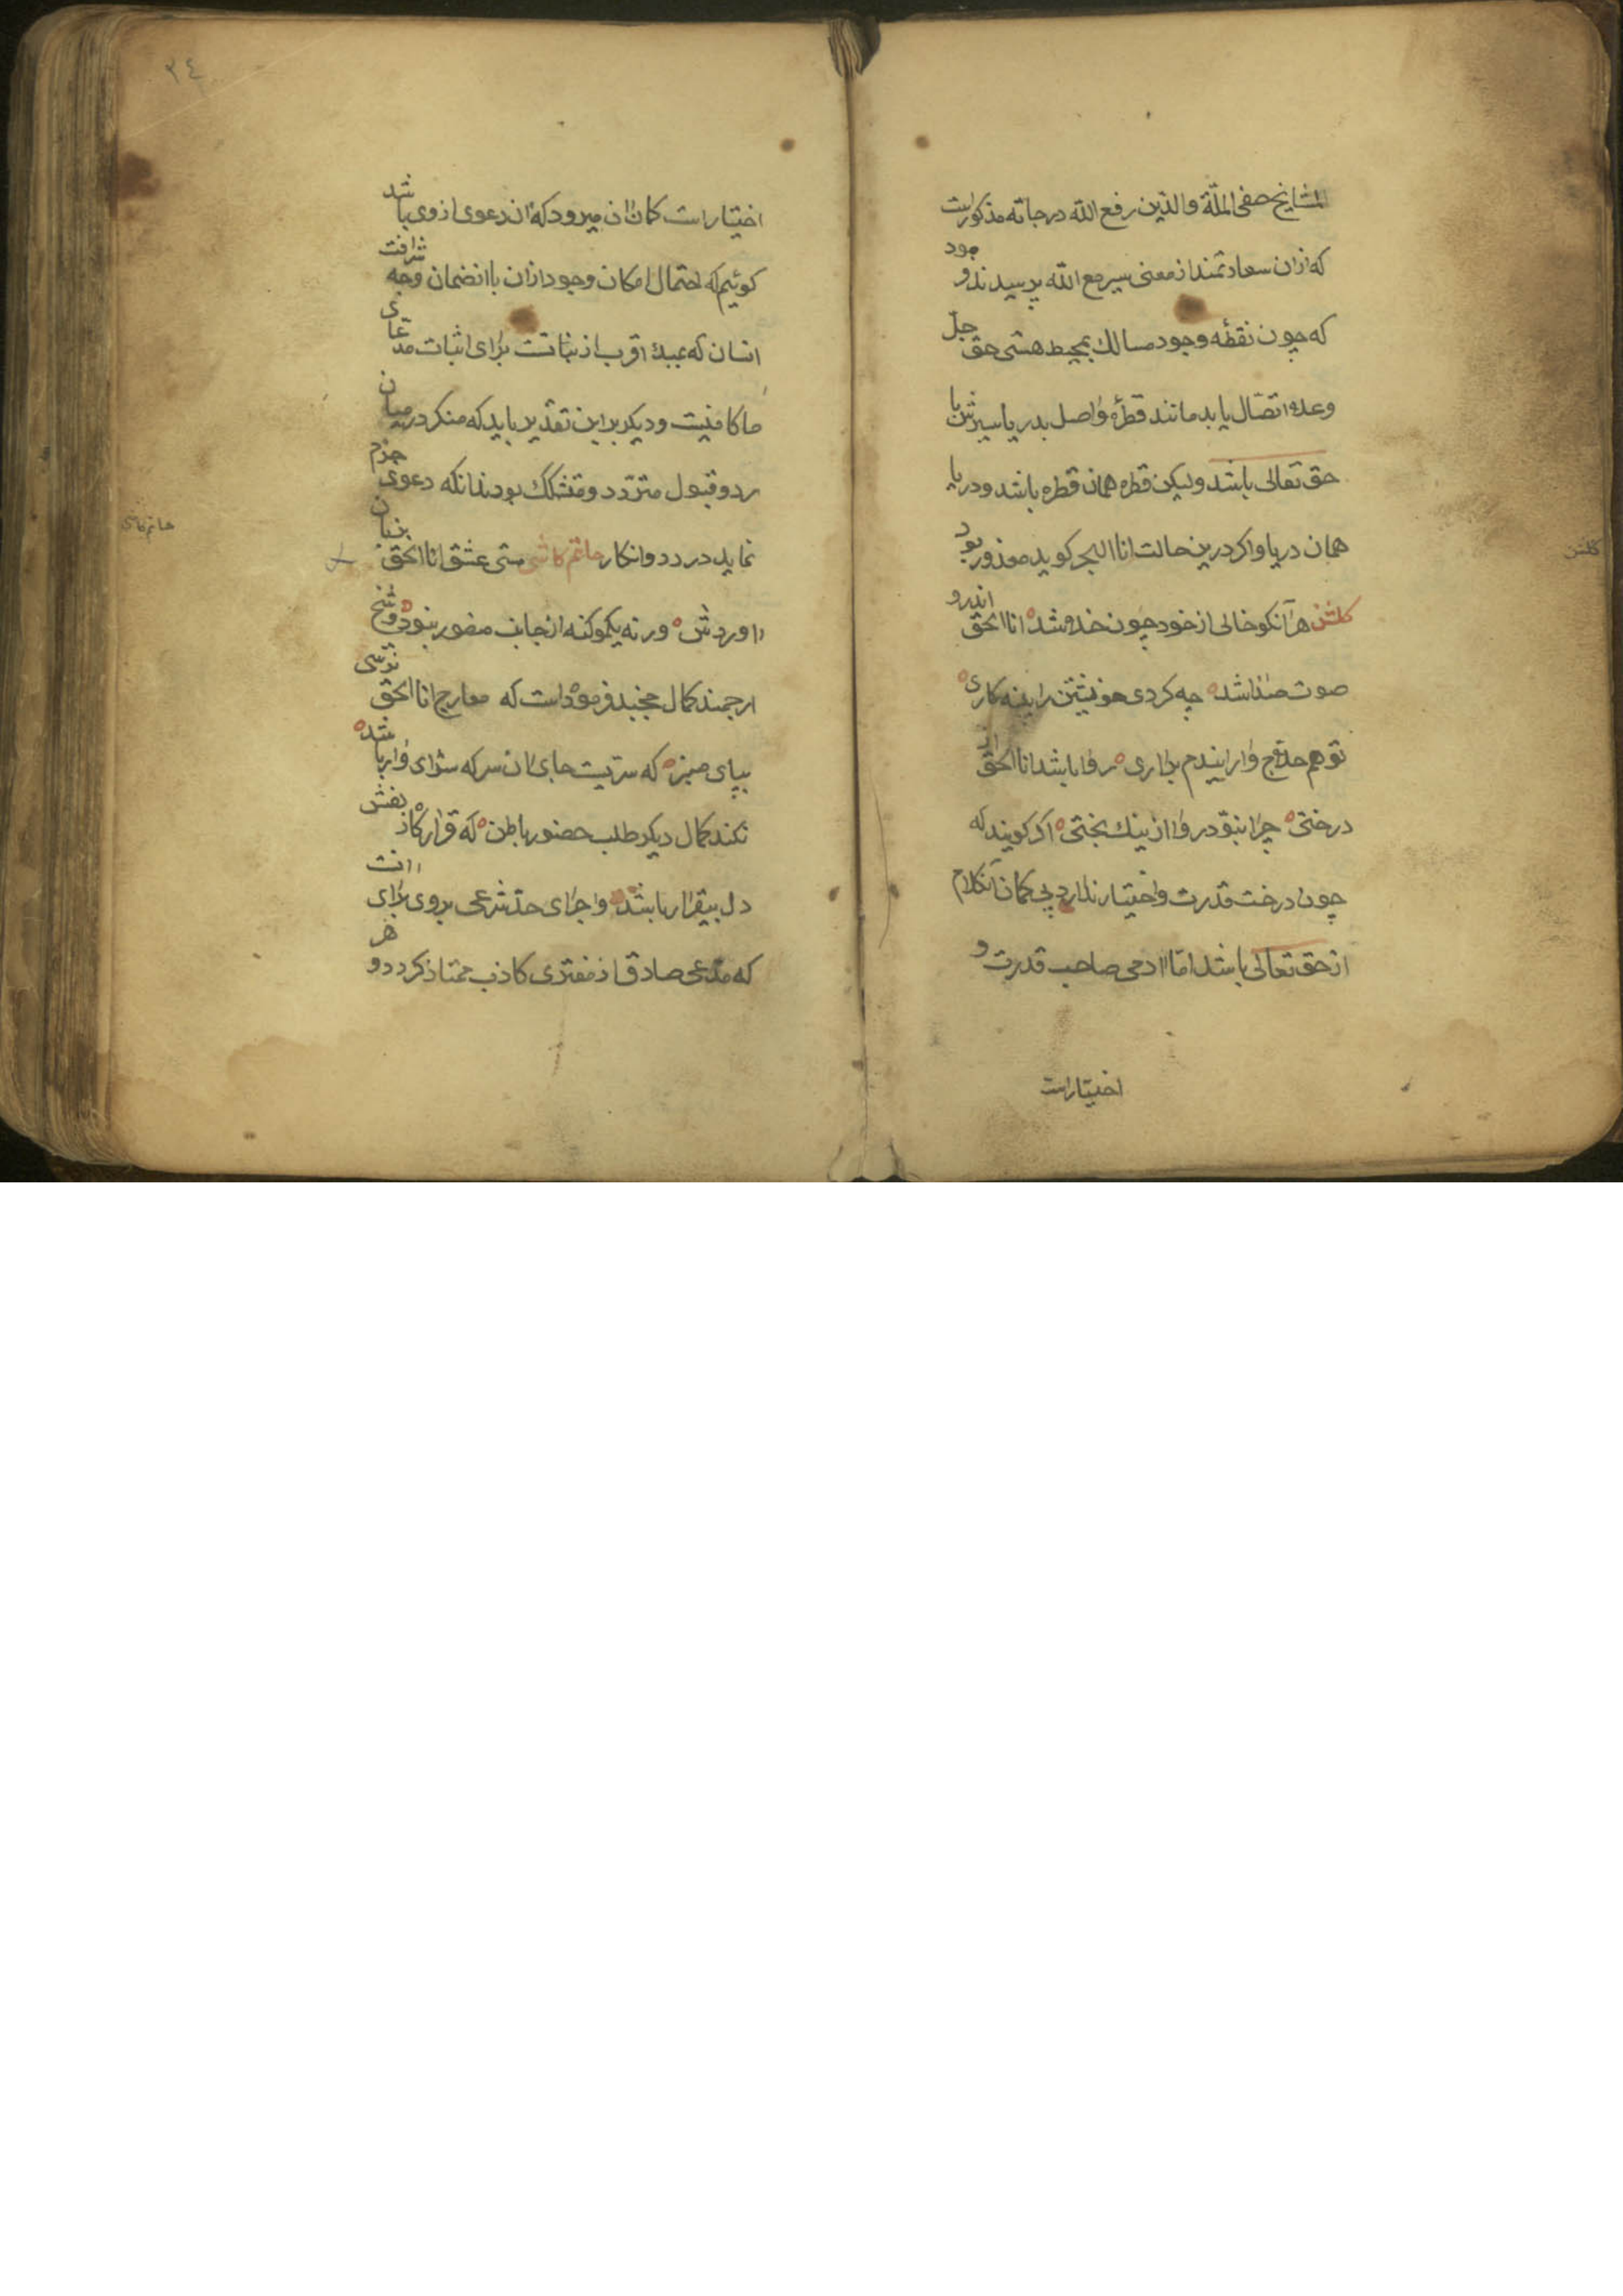 المشایخ صفی الملّة والدّین رفع الله درجاته مذکور است
که ازان سعادتمند از معنی سیر مع الله پرسیدند و جود
که چون نقطهٔ وجود سالك بمحیط هستی حق جلّ
وعلا اتصّال یابد مانند قطرهٔ واصل بدریا سیرش با
حق تعالی باشد ولیکن قطره همان قطره باشد ودریا
همان دریا واکر درین حالت انا البحر کوید معذور بود
کلشن هرآنکو خالی از خود چون خلا شد انا الحق اندرو
صوت صدا شد چه کردی خویشتن را پنبه کاری
تو هم حلاج وار ایندم براری روا باشد انا الحق از
درختی چرا نبود روا از نیك بختی اکر کویند که
چون درخت قدرت واختیار ندارد بی کمان آنکلام
از حق تعالی باشد امّا ادمی صاحب قدرت و
اختیار است
کلشن
٣٤
اختیار است کمان ان میرود که ان دعوی ازوی باشد
کوئیم که احتمال امکان وجود ازان با انضمان وجه شرافت
انسان که بمبدا اقرب از نباتست برای اثبات مدّعای
ما کافیست ودیکر براین تقدیر باید که منکر درمیان
رد وقبول متردّد ومتشکك بود نه انکه دعوی جزم
نماید در رد وانکار حاتم کاشی مستی عشق انا الحق بزبان
اوردش ورنه یکمو کنه از جانب منصور نبود وشیخ
ارجمند کمال خجند فرموده است که معارج انا الحق نرسی
بپای منبر که سریست جای ان سر که سزای دار باشد
نکند کمال دیکر طلب حضور باطن که قرارکاه زلفش
دل بیقرار باشد واجرای حد شرعی بروی برای انست
که مدّعی صادق از مفتری کاذب ممتاز کردد و هر
حاتم کاشی